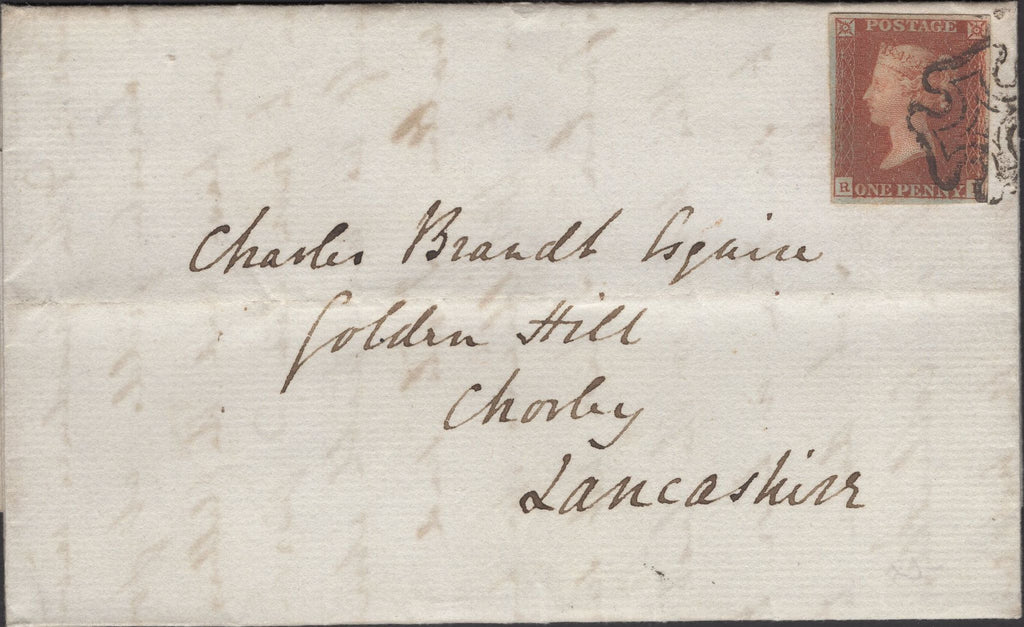 POSTAGE
R
ONE PENNY
Charles Brandt Esquire
Golden Hill
Chorley
Lancashire